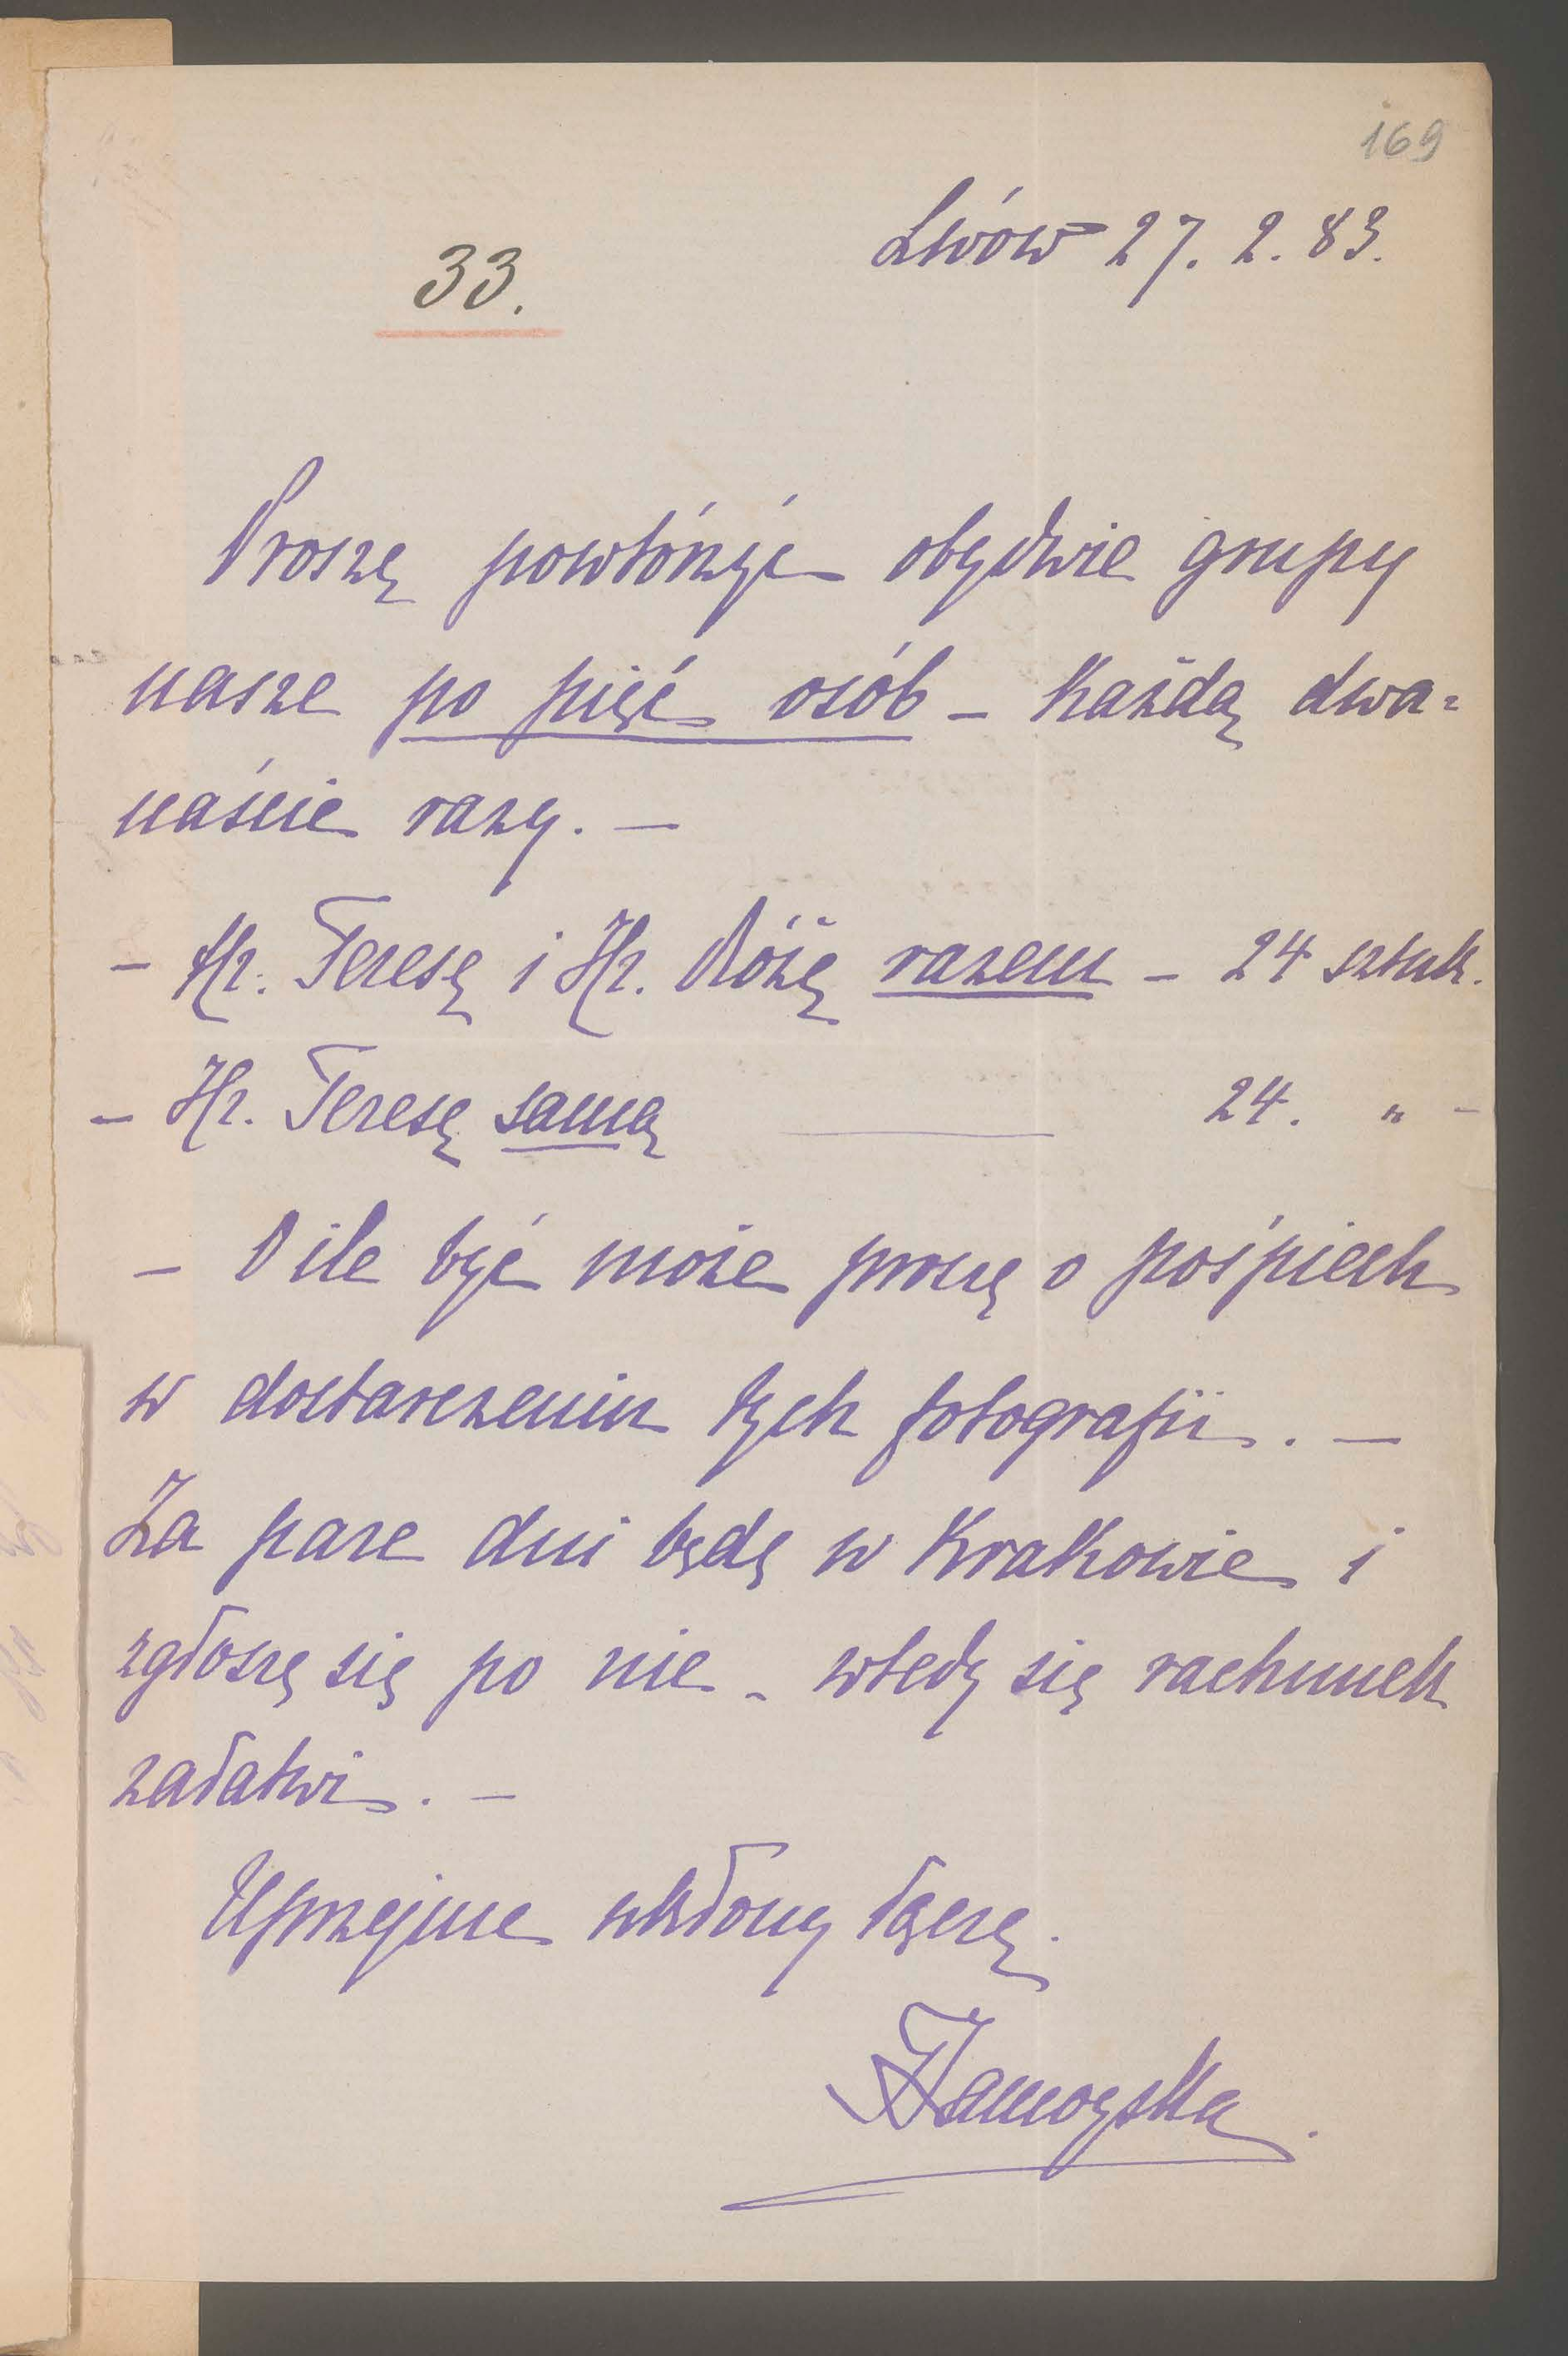 169
Lwów 27. 2. 83.
33.
Proszę powtórzyć obydwie grupy
nasze po pięć osób – Każdą dwa=
naście razy. –
– Hr. Teresę i Hr. Różę razem – 24 sztuk.
– Hr. Teresę samą — 24. " –
– O ile być może proszę o pośpiech
w dostarczeniu tych fotografii. –
Za parę dni będę w Krakowie i
zgłoszę się po nie – wtedy się rachunek
załatwi. –
Uprzejme ukłony łączę.
Zamoyska.